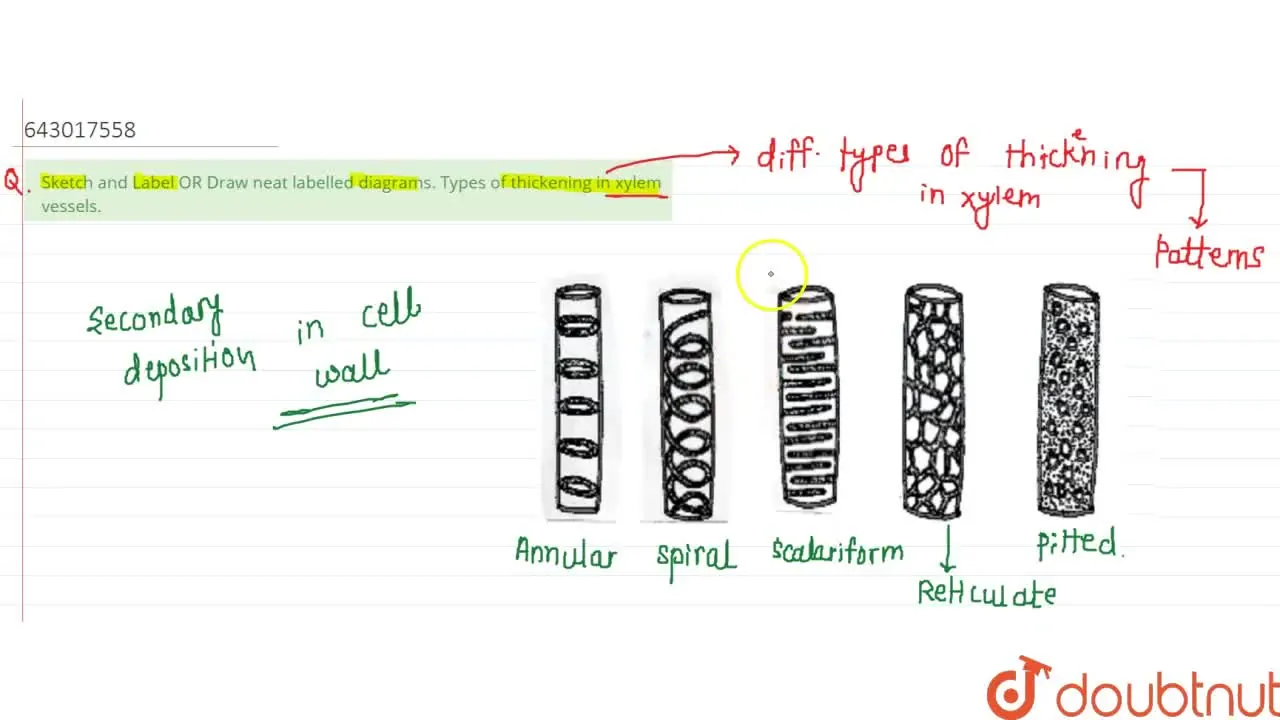 643017558
Q. Sketch and Label OR Draw neat labelled diagrams. Types of thickening in xylem
vessels.
diff. types of thickening
in xylem
Patterns
Secondary
deposition
in cell
wall
Annular
spiral
scalariform
Reticulate
pitted.
doubtnut